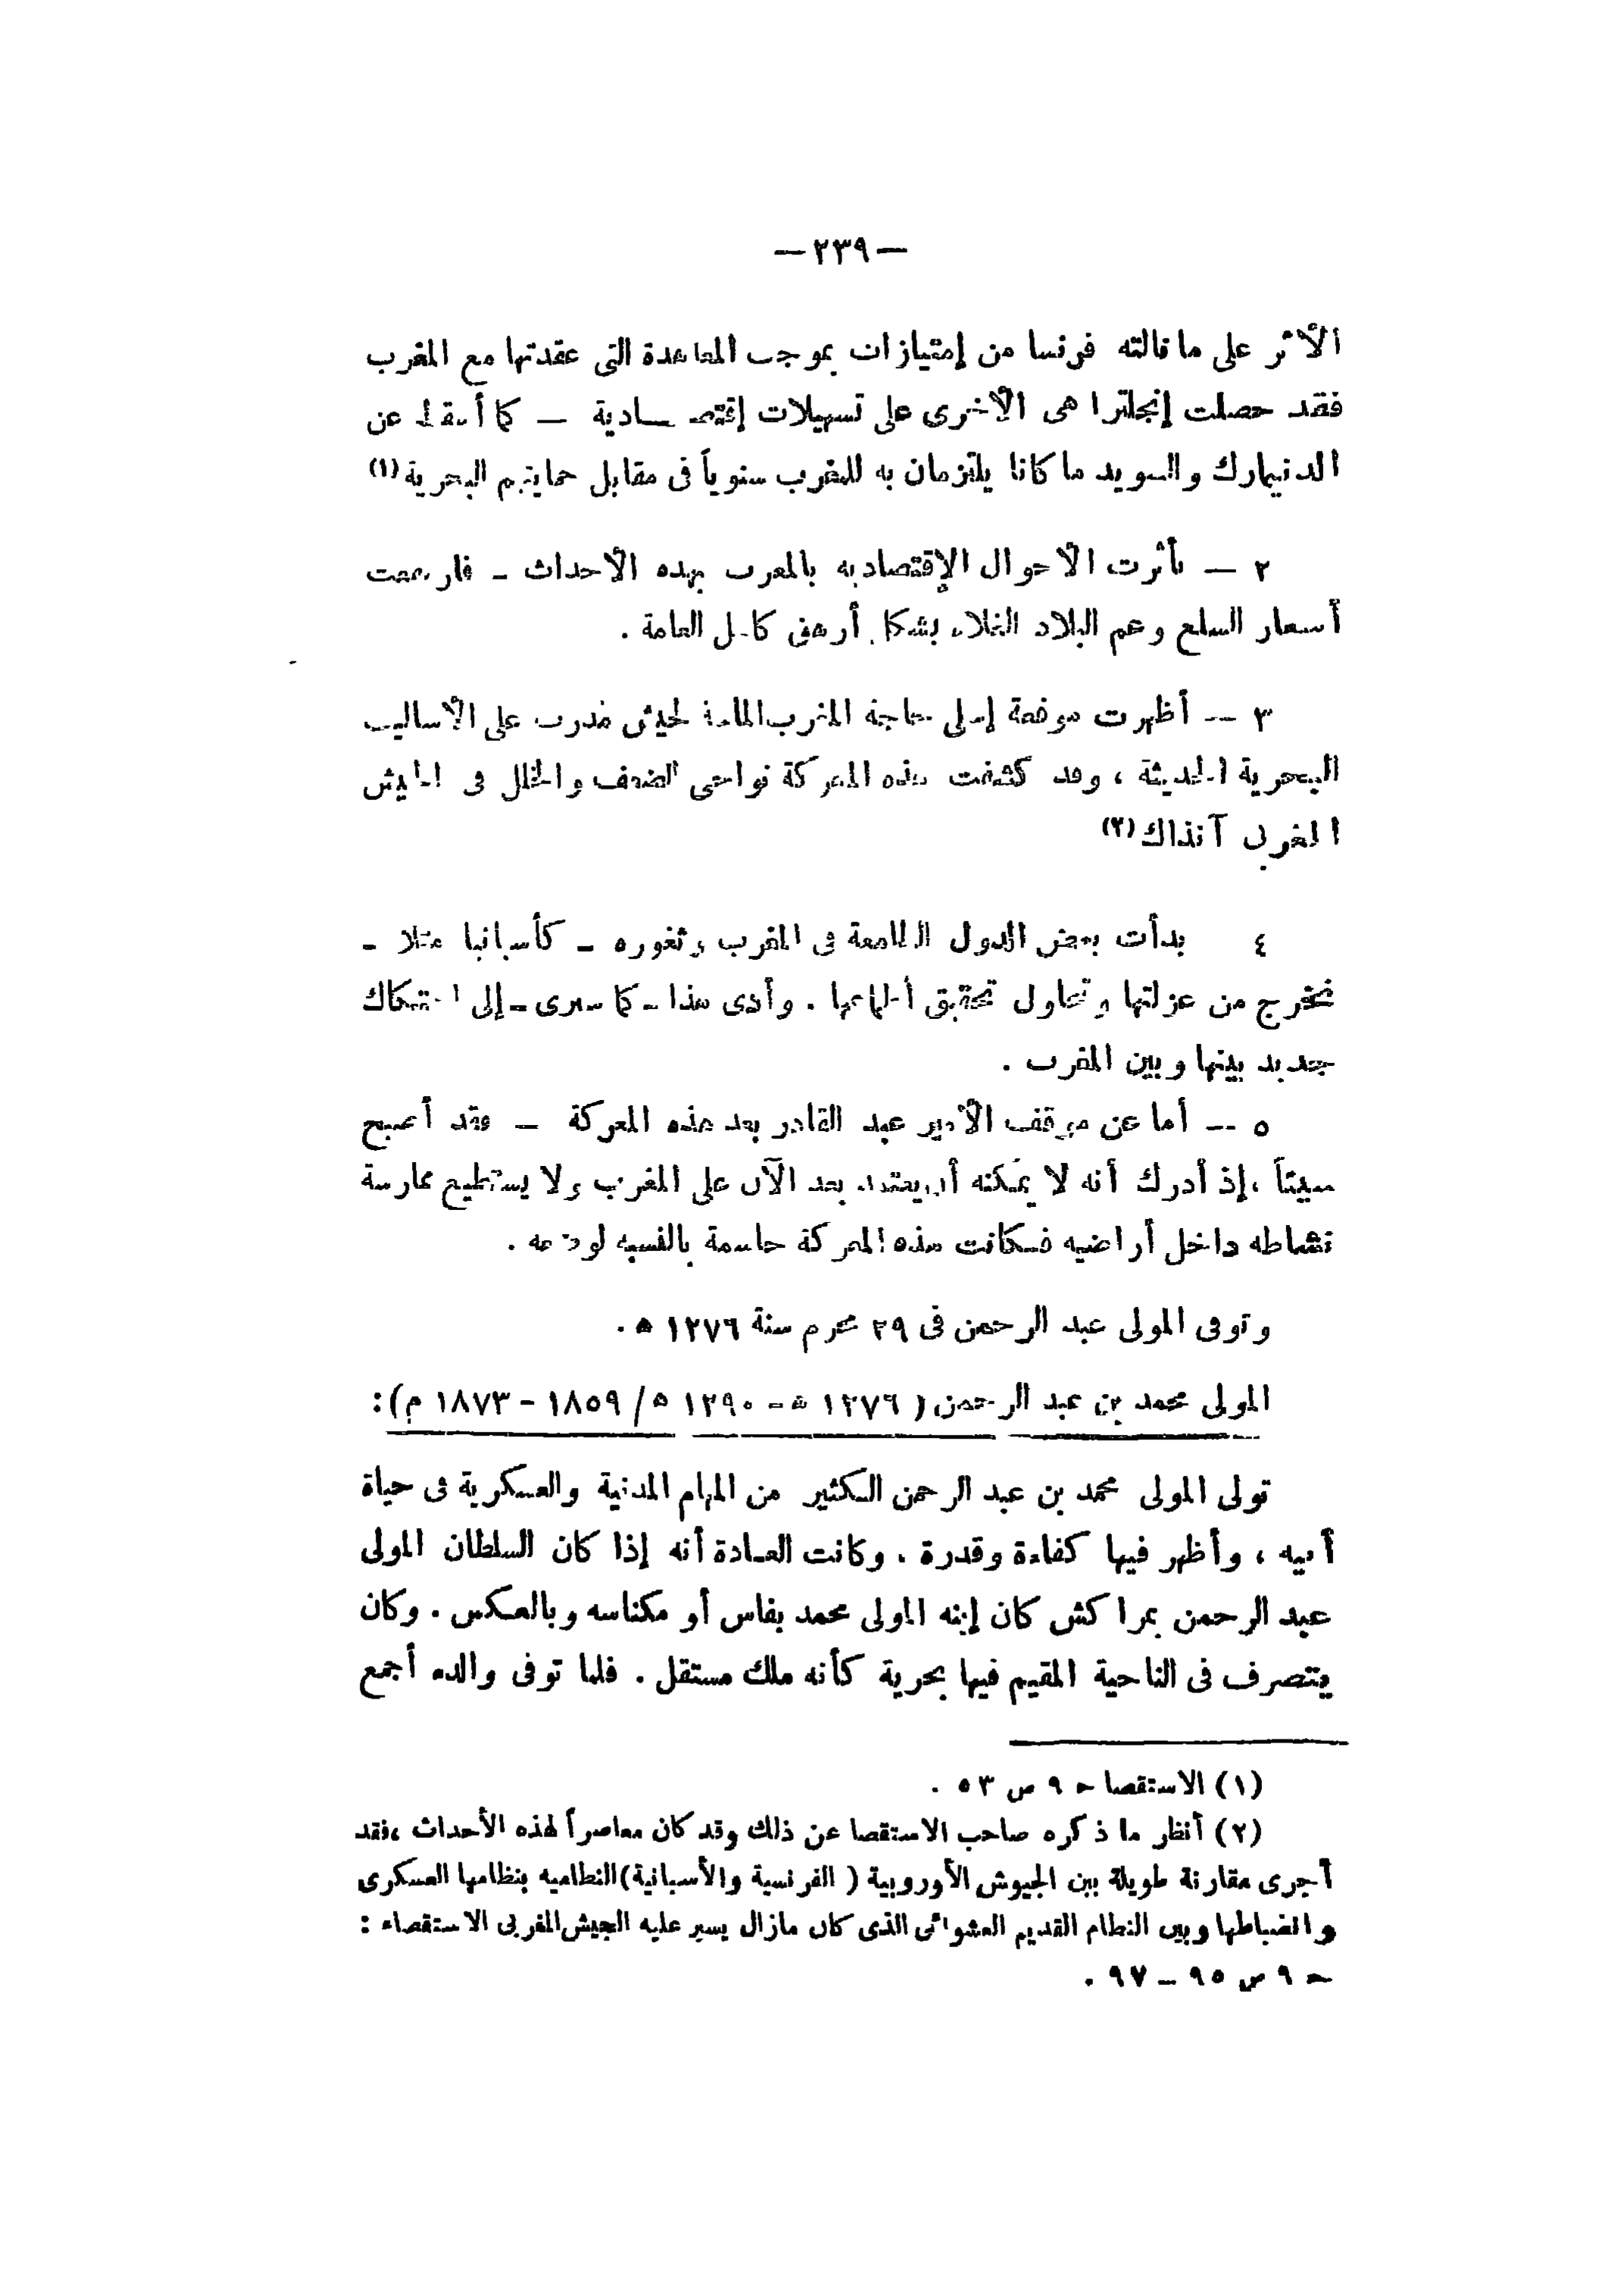 — ٢٣٩ —
الأثر على ما نالته فرنسا من إمتيازات بموجب المعاهدة التى عقدتها مع المغرب
فقد حصلت إنجلترا هى الأخرى على تسهيلات إقتصادية — كما أسقط عن
الدنيمارك والسويد ما كانا يلتزمان به للمغرب سنوياً فى مقابل حمايتهم البحرية (١)
٢ — تأثرت الأحوال الإقتصادية بالمغرب بهذه الأحداث - فارتفعت
أسعار السلع وعم البلاد الغلاء بشكل أرهق كاهل العامة .
٣ -- أظهرت موقعة إسلى حاجة المغرب الماسة لجيش مدرب على الأساليب
البحرية الحديثة ، وقد كشفت هذه المعركة نواحى الضعف والخلل فى الجيش
المغربى آنذاك (٢)
٤ بدأت بعض الدول الطامعة فى المغرب وثغوره - كأسبانيا مثلا -
تخرج من عزلتها وتحاول تحقيق أطماعها . وأدى هذا - كما سنرى - إلى احتكاك
جديد بينها وبين المغرب .
٥ -- أما عن موقف الأمير عبد القادر بعد هذه المعركة — فقد أصبح
سيئاً ، إذ أدرك أنه لا يمكنه أن يعتمد بعد الآن على المغرب ولا يستطيع ممارسة
نشاطه داخل أراضيه فكانت هذه المعركة حاسمة بالنسبة لوضعه .
وتوفى المولى عبد الرحمن فى ٢٩ محرم سنة ١٢٧٦ ه .
المولى محمد بن عبد الرحمن ( ١٢٧٦ ه - ١٢٩٠ ه / ١٨٥٩ - ١٨٧٣ م ) :
تولى المولى محمد بن عبد الرحمن الكثير من المهام المدنية والعسكرية فى حياة
أبيه ، وأظهر فيها كفاءة وقدرة . وكانت العادة أنه إذا كان السلطان المولى
عبد الرحمن بمراكش كان إبنه المولى محمد بفاس أو مكناسه وبالعكس . وكان
يتصرف فى الناحية المقيم فيها بحرية كأنه ملك مستقل . فلما توفى والده أجمع
(١) الاستقصا ح ٩ ص ٥٣ .
(٢) أنظر ما ذكره صاحب الاستقصا عن ذلك وقد كان معاصراً لهذه الأحداث ، فقد
أجرى مقارنة طويلة بين الجيوش الأوروبية ( الفرنسية والأسبانية) النظاميه بنظامها العسكرى
وانضباطها وبين النظام القديم العشوائى الذى كان مازال يسير عليه الجيش المغربى الاستقصاء :
ح ٩ ص ٩٥ - ٩٧ .